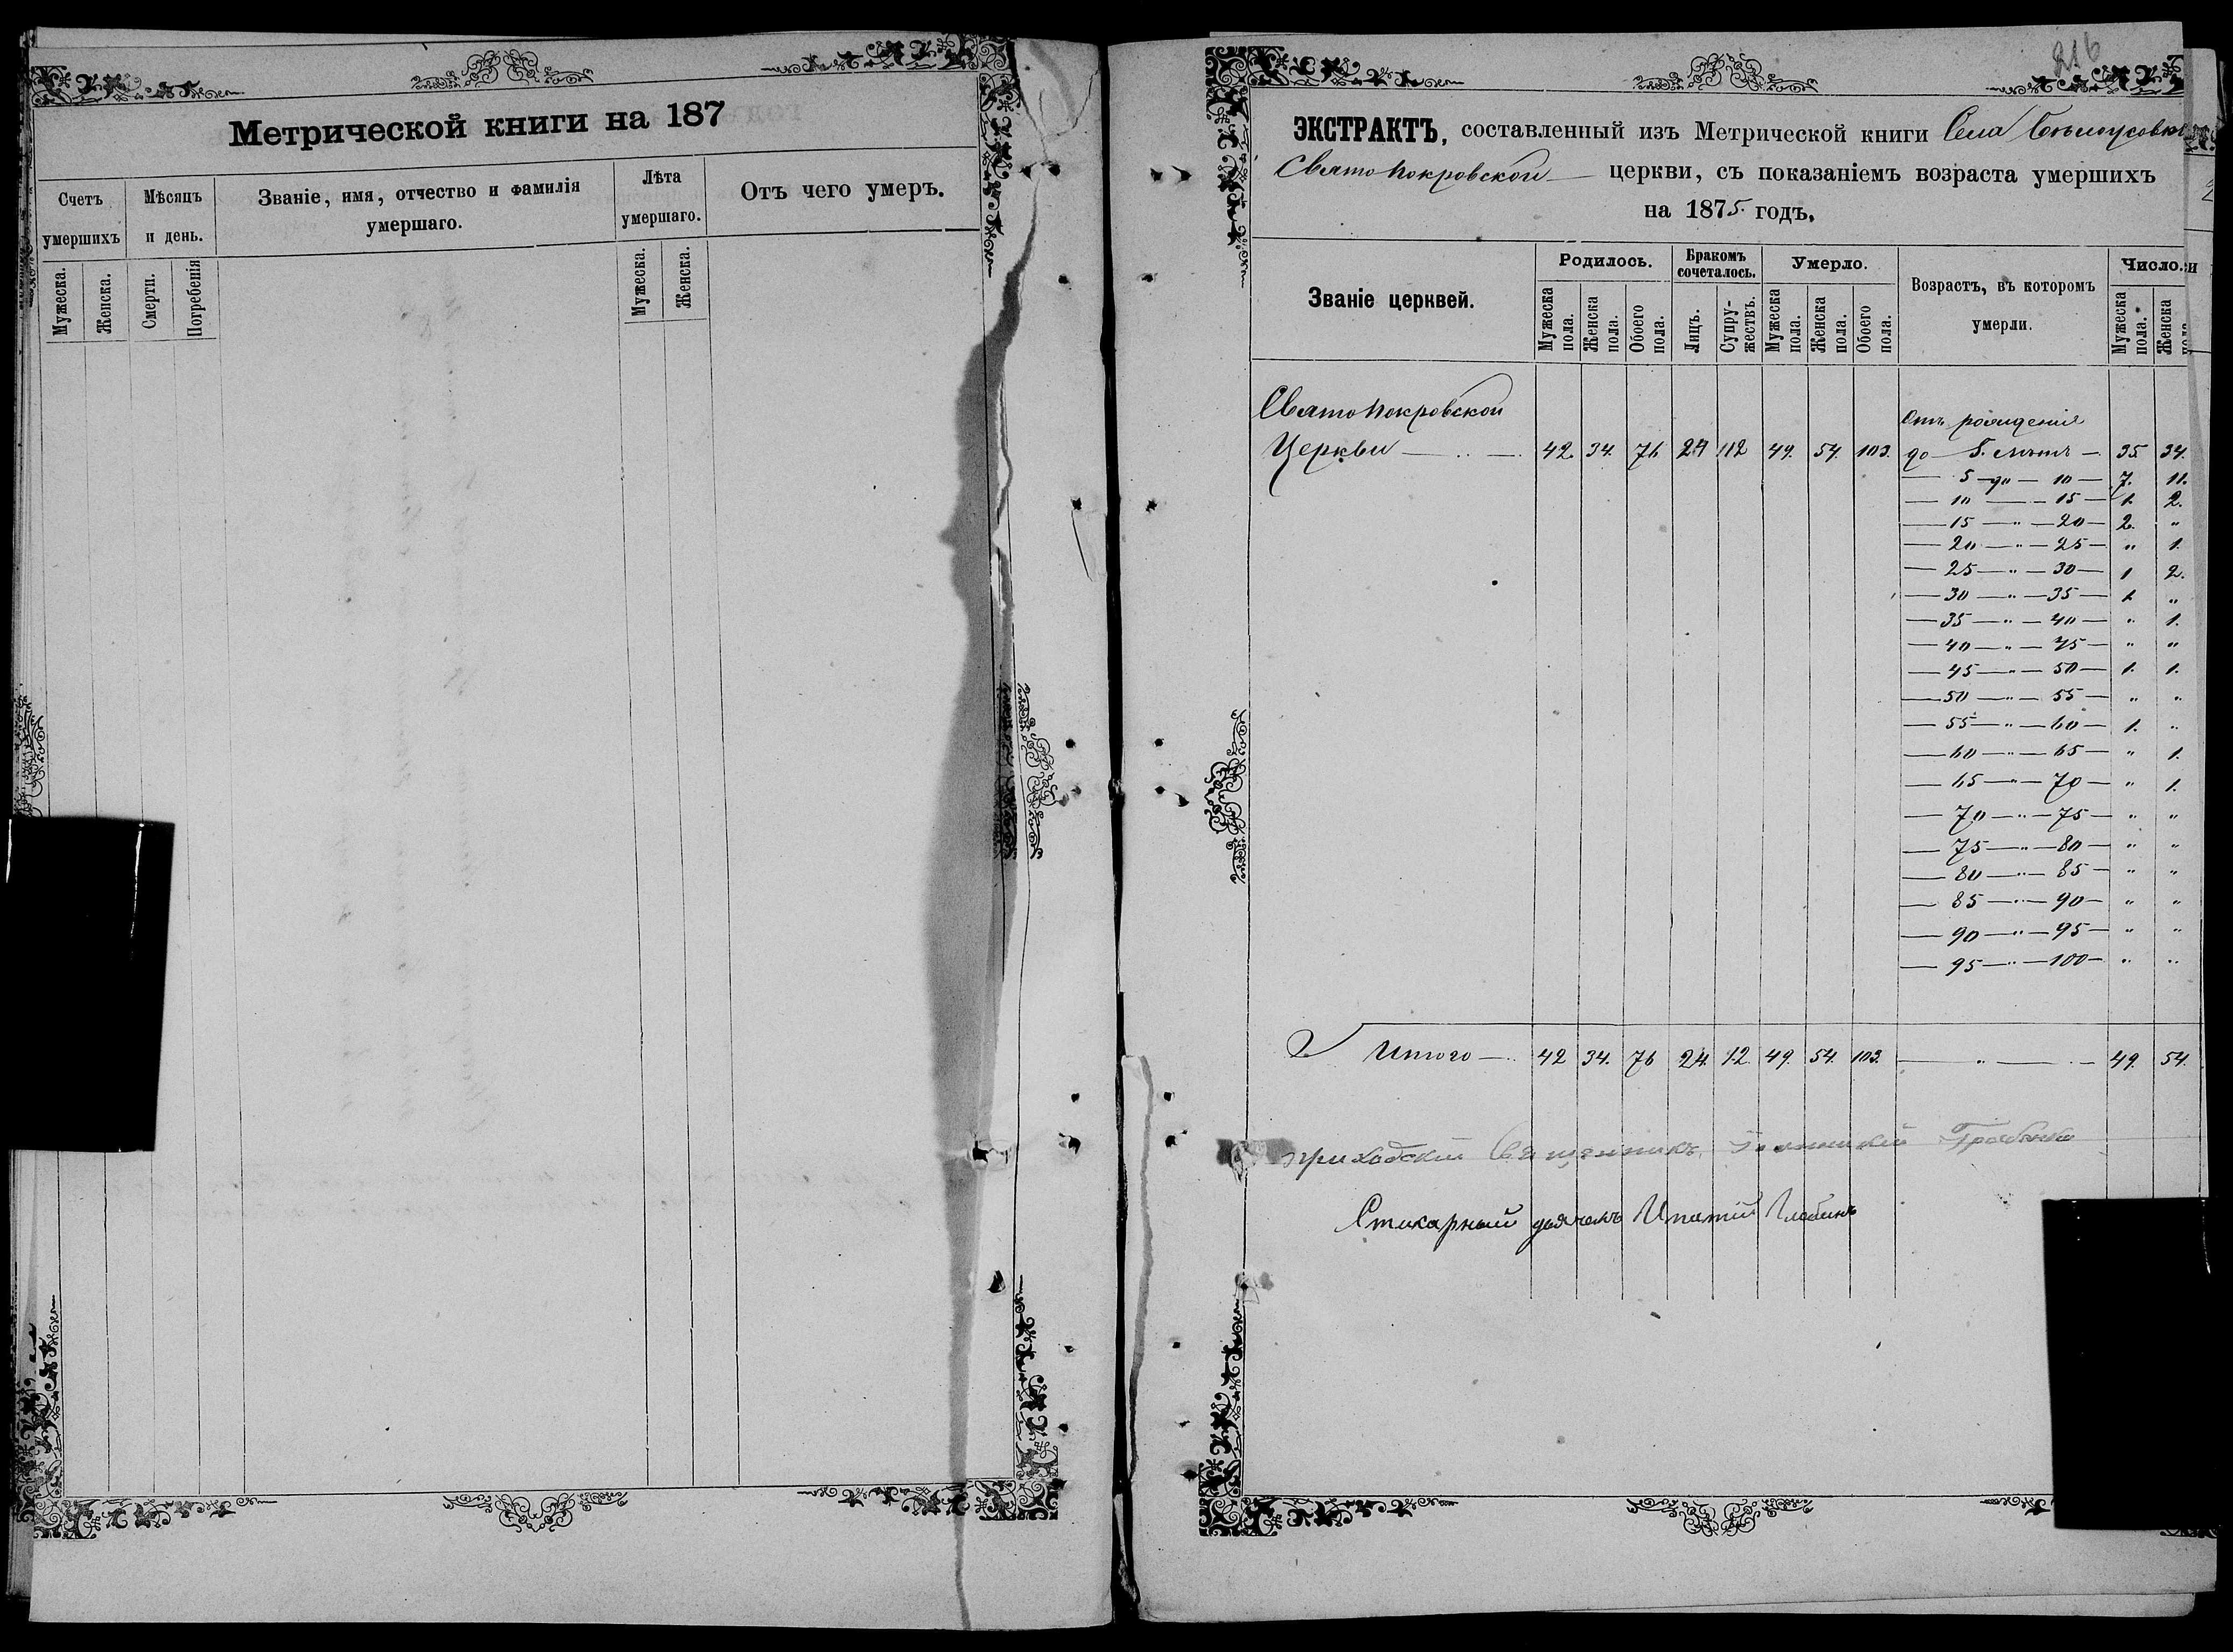 Метрической книги на 187
Счетъ умершихъ
Мѣсяцъ и день.
Званіе, имя, отчество и фамилія
умершаго.
Лѣта умершаго.
Отъ чего умеръ.
Мужеска. Женска. Смерти. Погребенія Мужеска. Женска.
216
ЭКСТРАКТЪ, составленный изъ Метрической книги Села
Свято Покровской церкви, съ показаніемъ возраста умершихъ
на 1875 годъ.
Званіе церквей.
Родилось.
Бракомъ сочеталось.
Умерло.
Возрастъ, въ которомъ умерли.
Число.
Мужеска пола. Женска пола. Обоего пола. Лицъ. Супружествъ. Мужеска пола. Женска пола. Обоего пола. Мужеска пола. Женска пола
Свято Покровской
Отъ рожденія
Церкви — „ — 42. 34. 76 24 12 49. 54. 103. до 5. лѣтъ — 35. 34.
— 5 — до — 10 — 7. 11.
— 10 — — 15 — 1. 2.
— 15 — „ — 20 — 2. „
— 20 — „ — 25 — „ 1.
— 25 — „ — 30 — 1 2.
— 30 — „ — 35 — 1. „
— 35 — „ — 40 — „ 1.
— 40 — „ — 45 — „ „
— 45 — „ — 50 — 1. 1.
— 50 — „ — 55 — „ „
— 55 — „ — 60 — 1. „
— 60 — „ — 65 — „ 1.
— 65 — „ — 70 — „ 1.
— 70 — „ — 75 — „ „
— 75 — „ — 80 — „ „
— 80 — „ — 85 — „ „
— 85 — „ — 90 — „ „
— 90 — „ — 95 — „ „
— 95 — „ — 100 — „ „
Итого — 42 34. 76 24. 12. 49. 54. 103. — „ — 49. 54.
Приходскій Священникъ
Стихарный дьячекъ Ипатій